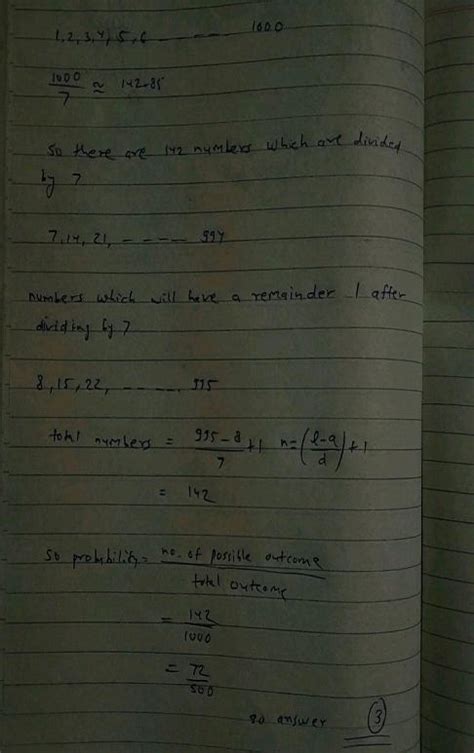 1, 2, 3, 4, 5, 6 ------- 1000
1000/7 ≈ 142.85
So there are 142 numbers which are divided
by 7
7, 14, 21, ------ 994
numbers which will have a remainder 1 after
dividing by 7
8, 15, 22, ------ 995
total numbers = 995-8/7 +1 n=(l-a/d)+1
= 142
So probability = no. of possible outcome/total outcome
= 142/1000
= 72/500
so answer 3